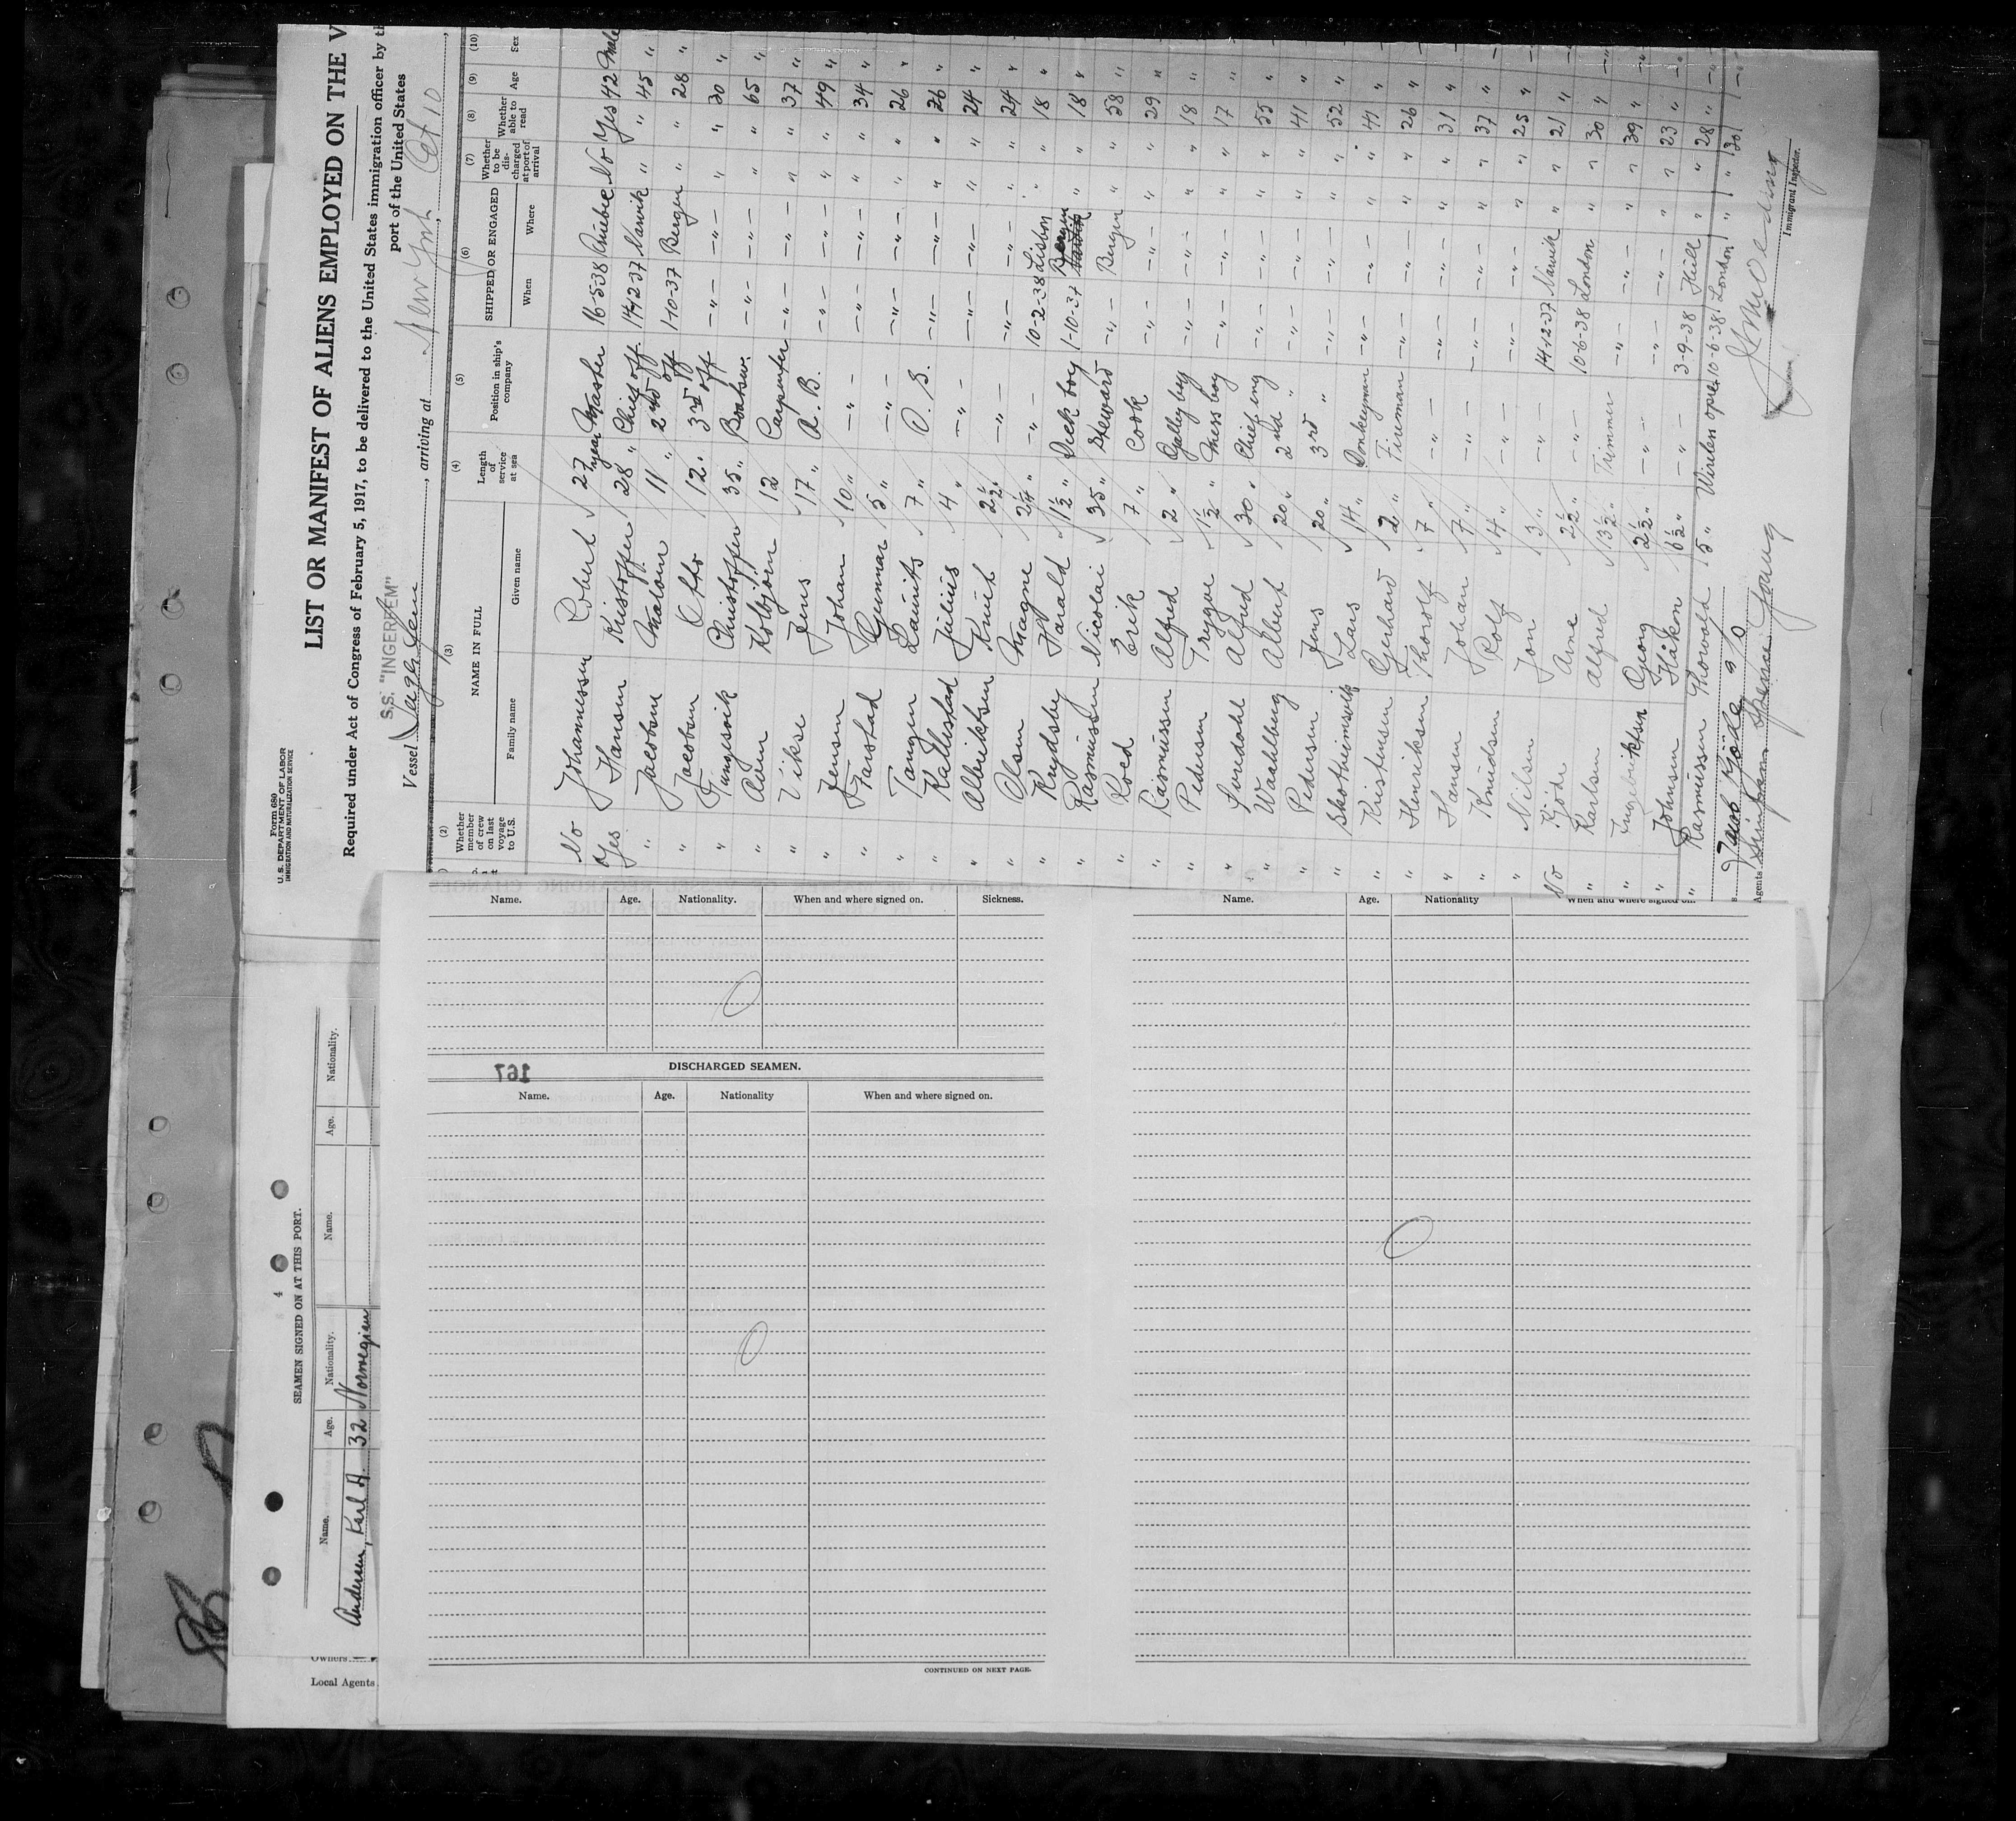 Form 680
U. S. DEPARTMENT OF LABOR
IMMIGRATION AND NATURALIZATION SERVICE
LIST OR MANIFEST OF ALIENS EMPLOYED ON THE V
Required under Act of Congress of February 5, 1917, to be delivered to the United States immigration officer by th
port of the United States
S.S. "INGEREM"
Vessel , arriving at New York Oct 10,
(2) (3) (4) (5) (6) (7) (8) (9) (10)
Whether member of crew on last voyage to U.S. NAME IN FULL Length of service at sea Position in ship's company SHIPPED OR ENGAGED Whether to be discharged at port of arrival Whether able to read Age Sex
Family name Given name When Where
No Johannessen Robert 27 year Master 16-5-38 Quebec No Yes 42 Male
Yes Hansen Kristoffer 28 " Chief off. 14-12-37 Narvik " " 45 "
" Jacobsen Malvin 11 " 2nd off 1-10-37 Bergen " " 28 "
" Jacobsen Otto 12 " 3rd off -"- -"- " " 30 "
" Tungesvik Christoffer 35 " Boatsw. -"- -"- " " 65 "
" Aven Kolbjörn 12 Carpenter -"- -"- " " 37 "
" Vikse Jens 17 " A. B. -"- -"- " " 49 "
" Jensen Johan 10 " -"- -"- -"- " " 34 "
" Farstad Gunnar 5 " -"- -"- -"- " " 26 "
" Tangen Laurits 7 " O. S. -"- -"- " " 26 "
" Kallestad Julius 4 " -"- -"- -"- " " 24 "
" Albriktsen Knut 2½ " -"- -"- -"- " " 24 "
" Olsen Magne 2¼ " -"- 10-2-38 Lisbon " " 18 "
" Krydsby Harald 1½ " Deck boy 1-10-37 Bergen " " 18 "
" Rasmussen Nicolai 35 " Steward -"- Bergen " " 58 "
" Roed Erik 7 " Cook -"- -"- " " 29 "
" Rasmussen Alfred 2 " Galley boy -"- -"- " " 18 "
" Pedersen Trygve 1½ " Mess boy -"- -"- " " 17 "
" Svendahl Alfred 30 " Chief eng -"- -"- " " 55 "
" Waahlburg Albert 20 " 2nd " -"- -"- " " 41 "
" Pedersen Jens 20 " 3rd " -"- -"- " " 52 "
" Skotheimsvik Lars 14 " Donkeyman -"- -"- " " 41 "
" Kristensen Gerhard 2 " Fireman -"- -"- " " 26 "
" Henriksen Thorolf 7 " -"- -"- -"- " " 31 "
" Hansen Johan 7 " -"- -"- -"- " " 37 "
" Knudsen Rolf 4 " -"- -"- -"- " " 25 "
" Nilsen Jon 3 " -"- 14-12-37 Narvik " " 21 "
No Kjöde Arne 2½ " -"- 10-6-38 London " " 30 "
" Karlsen Alfred 3½ " Trimmer -"- -"- " " 39 "
" Ingebriktsen Georg 2½ " -"- -"- -"- " " 23 "
" Johnsen Håkon 6½ " -"- 3-9-38 Hull " " 28 "
" Rasmussen Thorvald 5 " Wireless oper. 10-6-38 London " " 30
Jacob Kjöde a/s
Agents Simpson Spence Young
Immigrant Inspector.
SEAMEN SIGNED ON AT THIS PORT.
4
Name. Age. Nationality. Name. Age. Nationality.
Andersen, Karl A. 32 Norwegian
Owners
Local Agents
Name. Age. Nationality. When and where signed on. Sickness.
167
DISCHARGED SEAMEN.
Name. Age. Nationality When and where signed on.
CONTINUED ON NEXT PAGE.
Name. Age. Nationality When and where signed on.